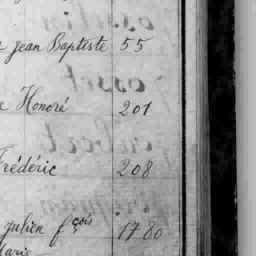 Jean Baptiste 55
Honoré 201
Frédéric 208
julien f.çois 1780
Marie